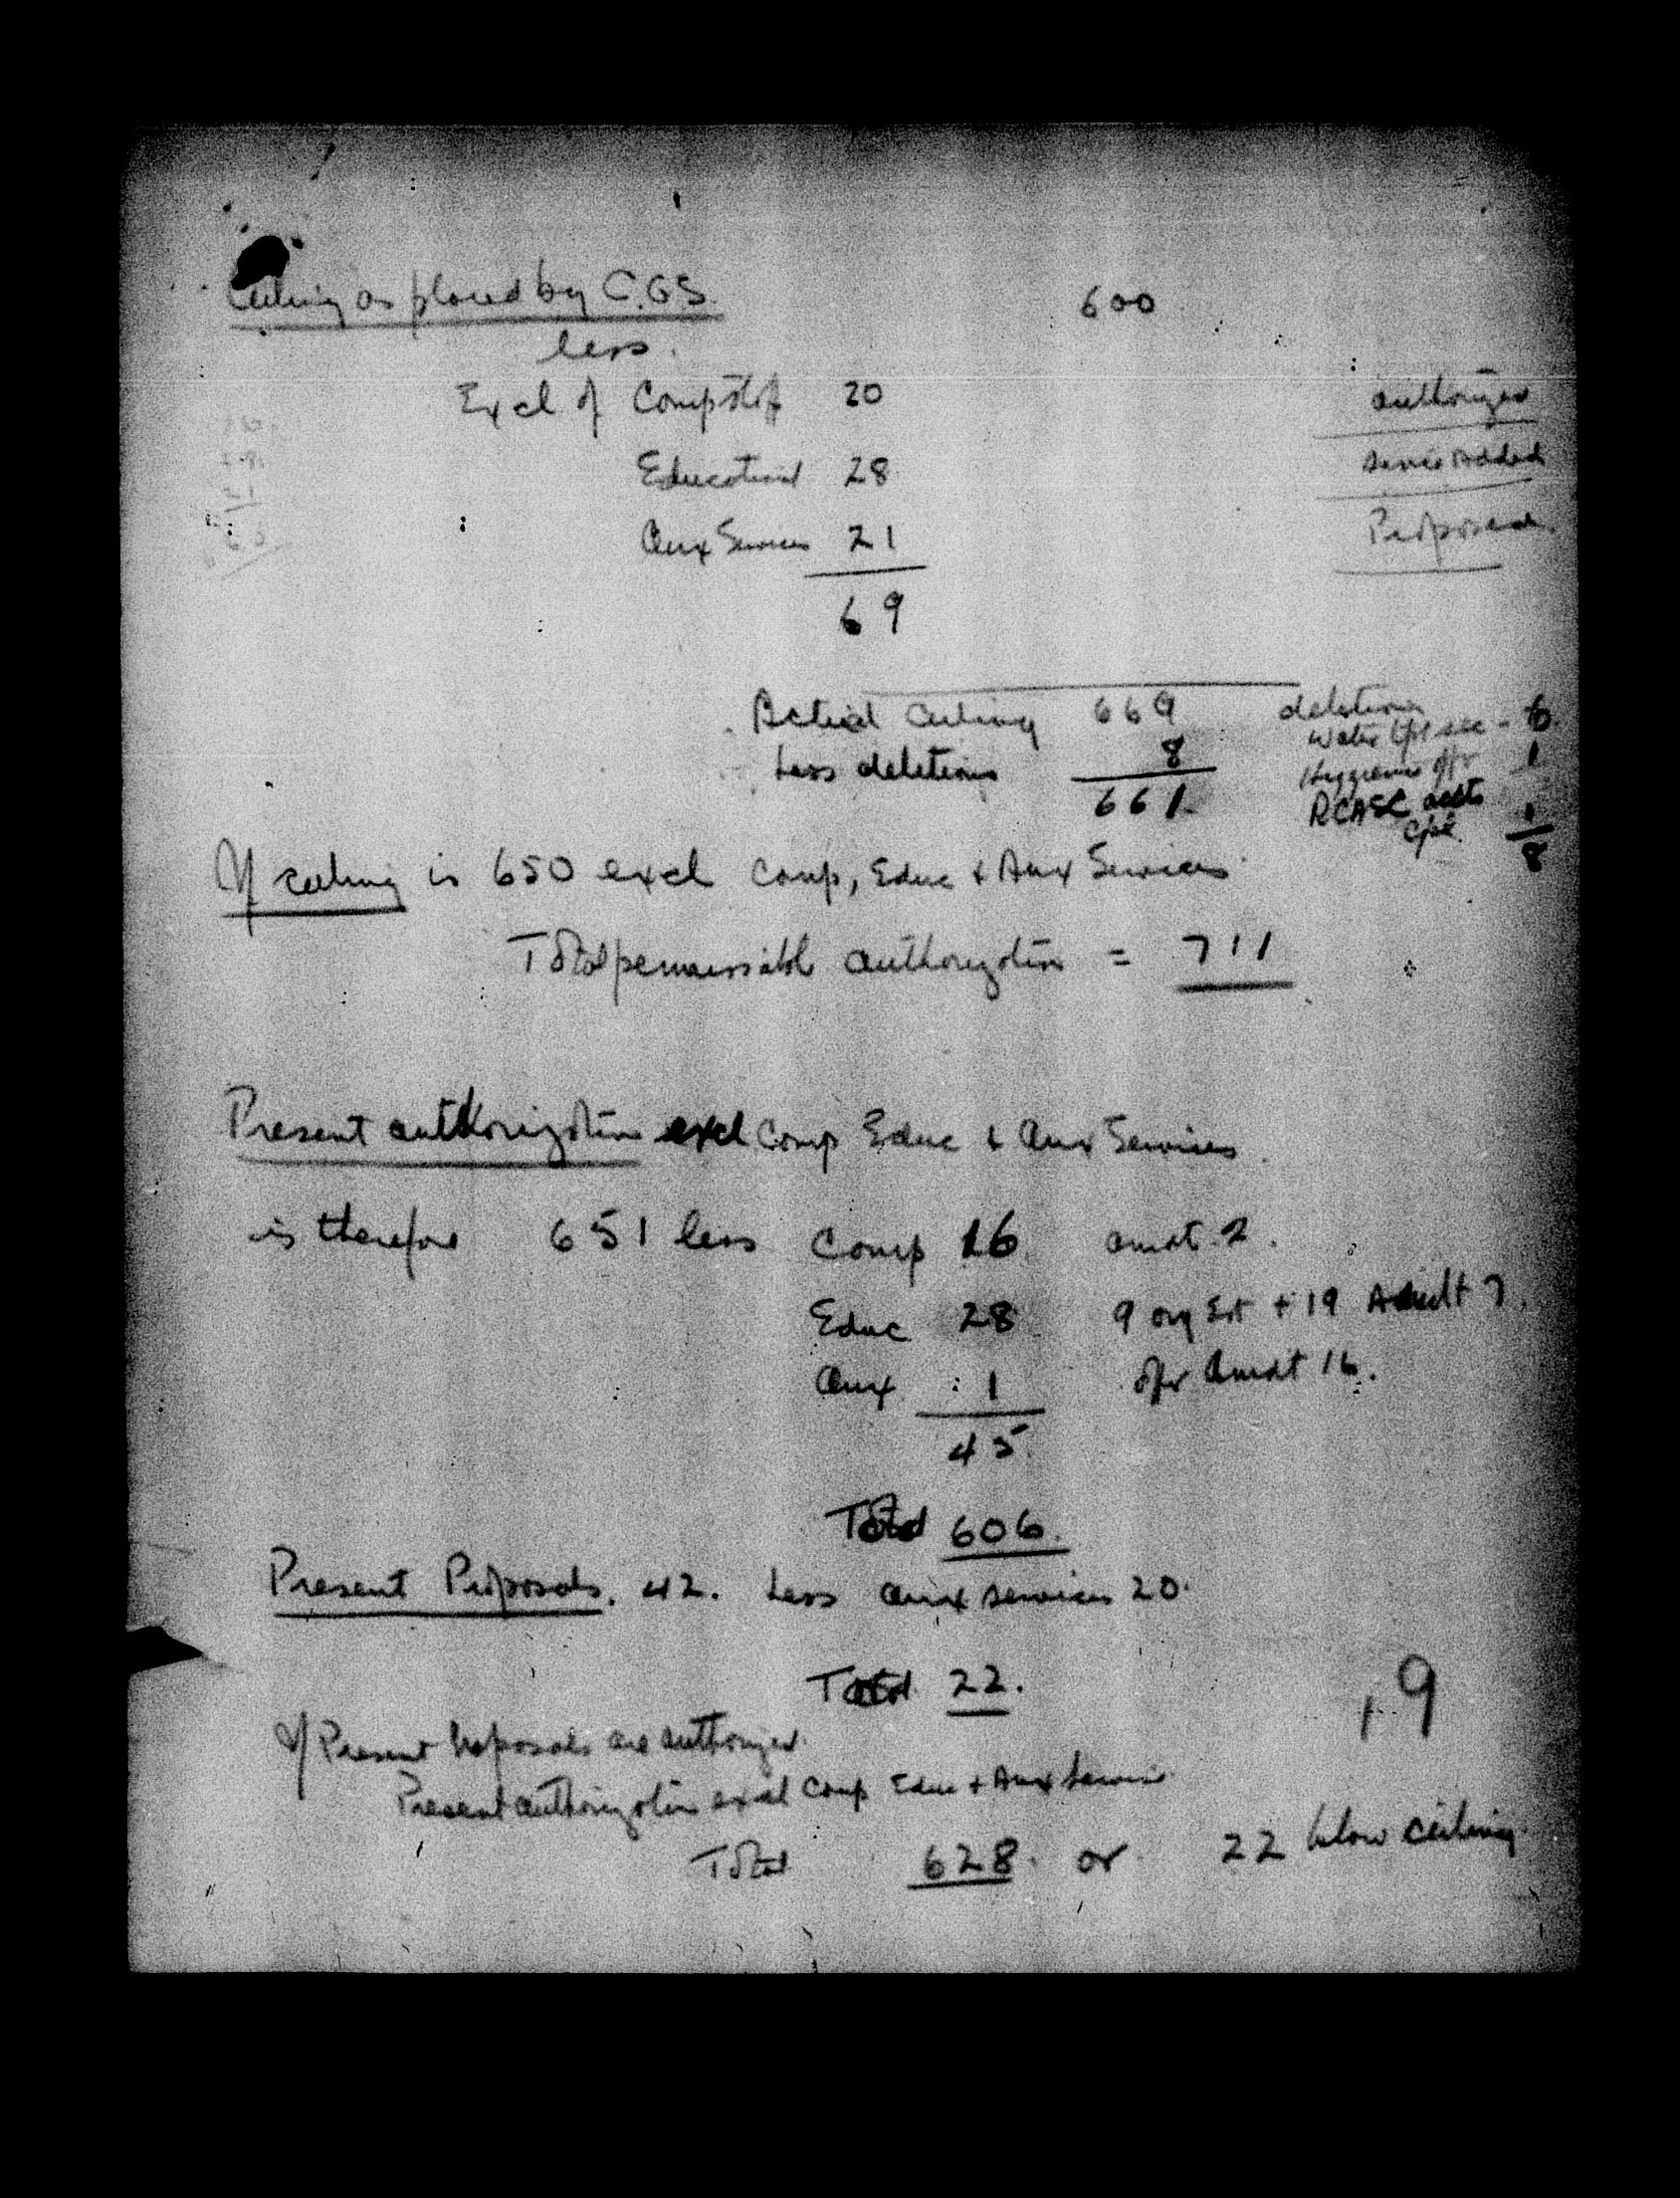 Ceiling as placed by C.G.S. 600
less.
Excl of Comp Staff 20 authorized
Education 28 since added
Aux Services 21 Proposed
69
Actual Ceiling 669 deletions
Water Tpt sec - 6
Less deletions 8 Hygiene offr 1
661 RCASC accts
Cpl. 1
8
If ceiling is 650 excl Comp, Educ + Aux Services
Total permissable authorization = 711
Present authorization excl Comp Educ & Aux Services
is therefore 651 less Comp 16 amdt 2.
Educ 28 9 org Est + 19 Amdt 7.
Aux 1 offr Amdt 16.
45
Total 606.
Present Proposals. 42. Less aux services 20
Total 22.
19
If Present Proposals are authorized.
Present authorization excl Comp Educ + Aux Services
Total 628 or 22 below ceiling